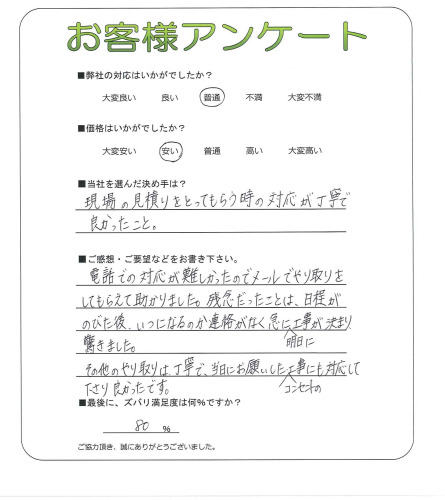 お客様アンケート
■弊社の対応はいかがでしたか?
大変良い 良い 普通 不満 大変不満
■価格はいかがでしたか?
大変安い 安い 普通 高い 大変高い
■当社を選んだ決め手は?
現場の見積りをとってもらう時の対応が丁寧で
良かったこと。
■ご感想・ご要望などをお書き下さい。
電話での対応が難しかったのでメールでやり取りを
してもらえて助かりました。残念だったことは、日程が
のびた後、いつになるのか連絡がなく急に工事が決まり
明日に
驚きました。
その他のやり取りは丁寧で、当日にお願いした工事にも対応して
コンセントの
下さり良かったです。
■最後に、ズバリ満足度は何%ですか?
80 %
ご協力頂き、誠にありがとうございました。